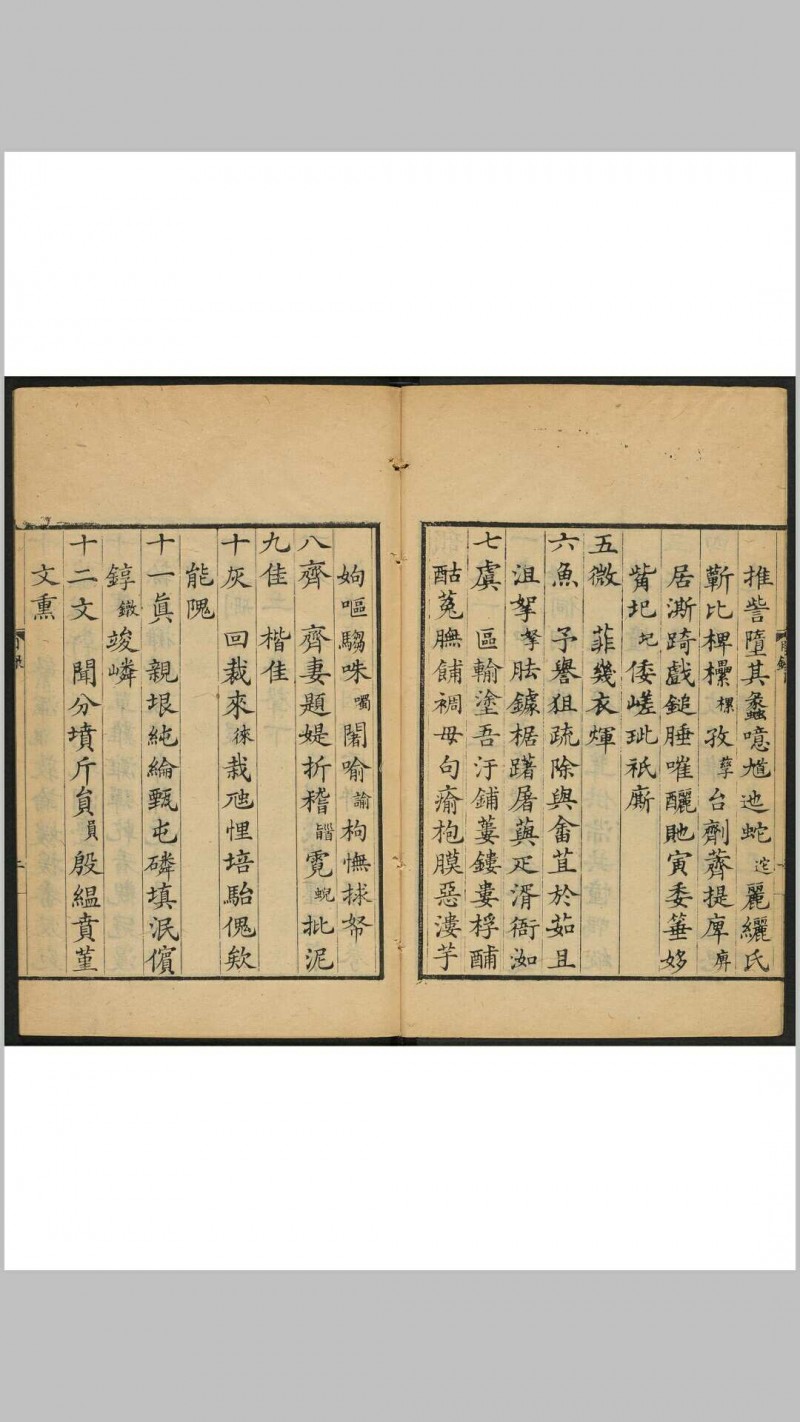 推訾墮其蠡噫尯迆蛇迱麗纚氏
蘄比椑欙樏孜孳台劑薺提庳㾱
居澌踦戲鎚腄嗺釃貤寅委箠姼
觜圯圮倭嵯玼祇廝
五微 菲幾衣煇
六魚 予譽狙疏除與畬苴於茹且
沮挐拏胠鐻椐躇屠蕮疋湑衙洳
七虞 區輸塗吾汙鋪蔞鏤婁桴酺
酤菟膴餔裯毋句瘉枹膜惡漊芋
姁嘔騶咮噣闍喻諭枸憮捄帑
八齊 齊妻題媞折稽䭫霓蜺批泥
九佳 楷佳
十灰 回裁來徠栽虺悝培駘傀欸
能隗
十一眞 親垠純綸甄屯磷填泯儐
錞鐓竣嶙
十二文 聞分墳斤貟員殷緼賁堇
文熏